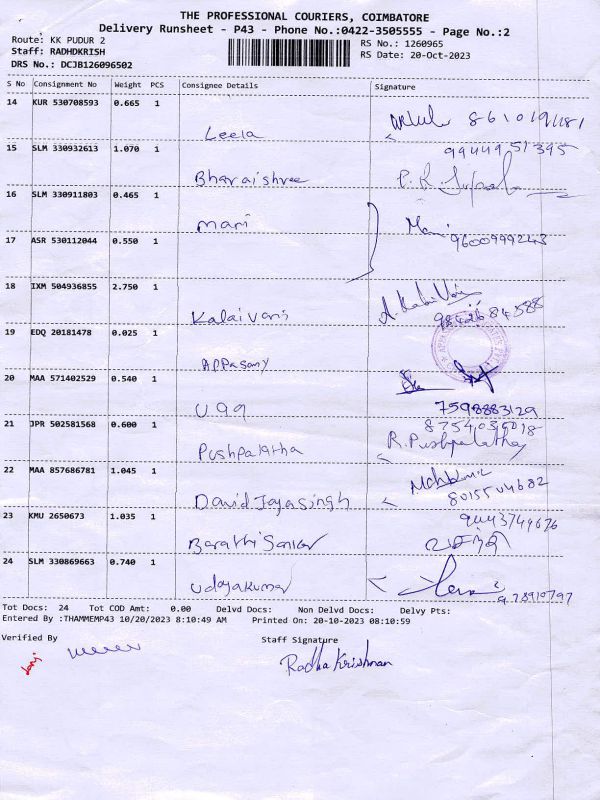 THE PROFESSIONAL COURIERS, COIMBATORE
Delivery Runsheet - P43 - Phone No.:0422-3505555 - Page No.:2
Route: KK PUDUR 2
RS No.: 1260965
Staff: RADHDKRISH
RS Date: 20-Oct-2023
DRS No.: DCJB126096502
S No Consignment No Weight PCS Consignee Details Signature
14 KUR 530708593 0.665 1
Leela
15 SLM 330932613 1.070 1
P.R.
16 SLM 330911803 0.465 1
mani Mani
9600999243
17 ASR 530112044 0.550 1
18 IXM 504936855 2.750 1
Kalaivani
19 EDQ 20181478 0.025 1
Appasamy
20 MAA 571402529 0.540 1
7598883129
21 JPR 502581568 0.600 1
Pushpalatha R. Pushpalatha
22 MAA 857686781 1.045 1
David Jayasingh
23 KMU 2650673 1.035 1 9443749676
வசந்தி
24 SLM 330869663 0.740 1
Udayakumar
Tot Docs: 24 Tot COD Amt: 0.00 Delvd Docs: Non Delvd Docs: Delvy Pts:
Entered By :THAMMEMP43 10/20/2023 8:10:49 AM Printed On: 20-10-2023 08:10:59
Verified By Staff Signature
Radha Krishnan